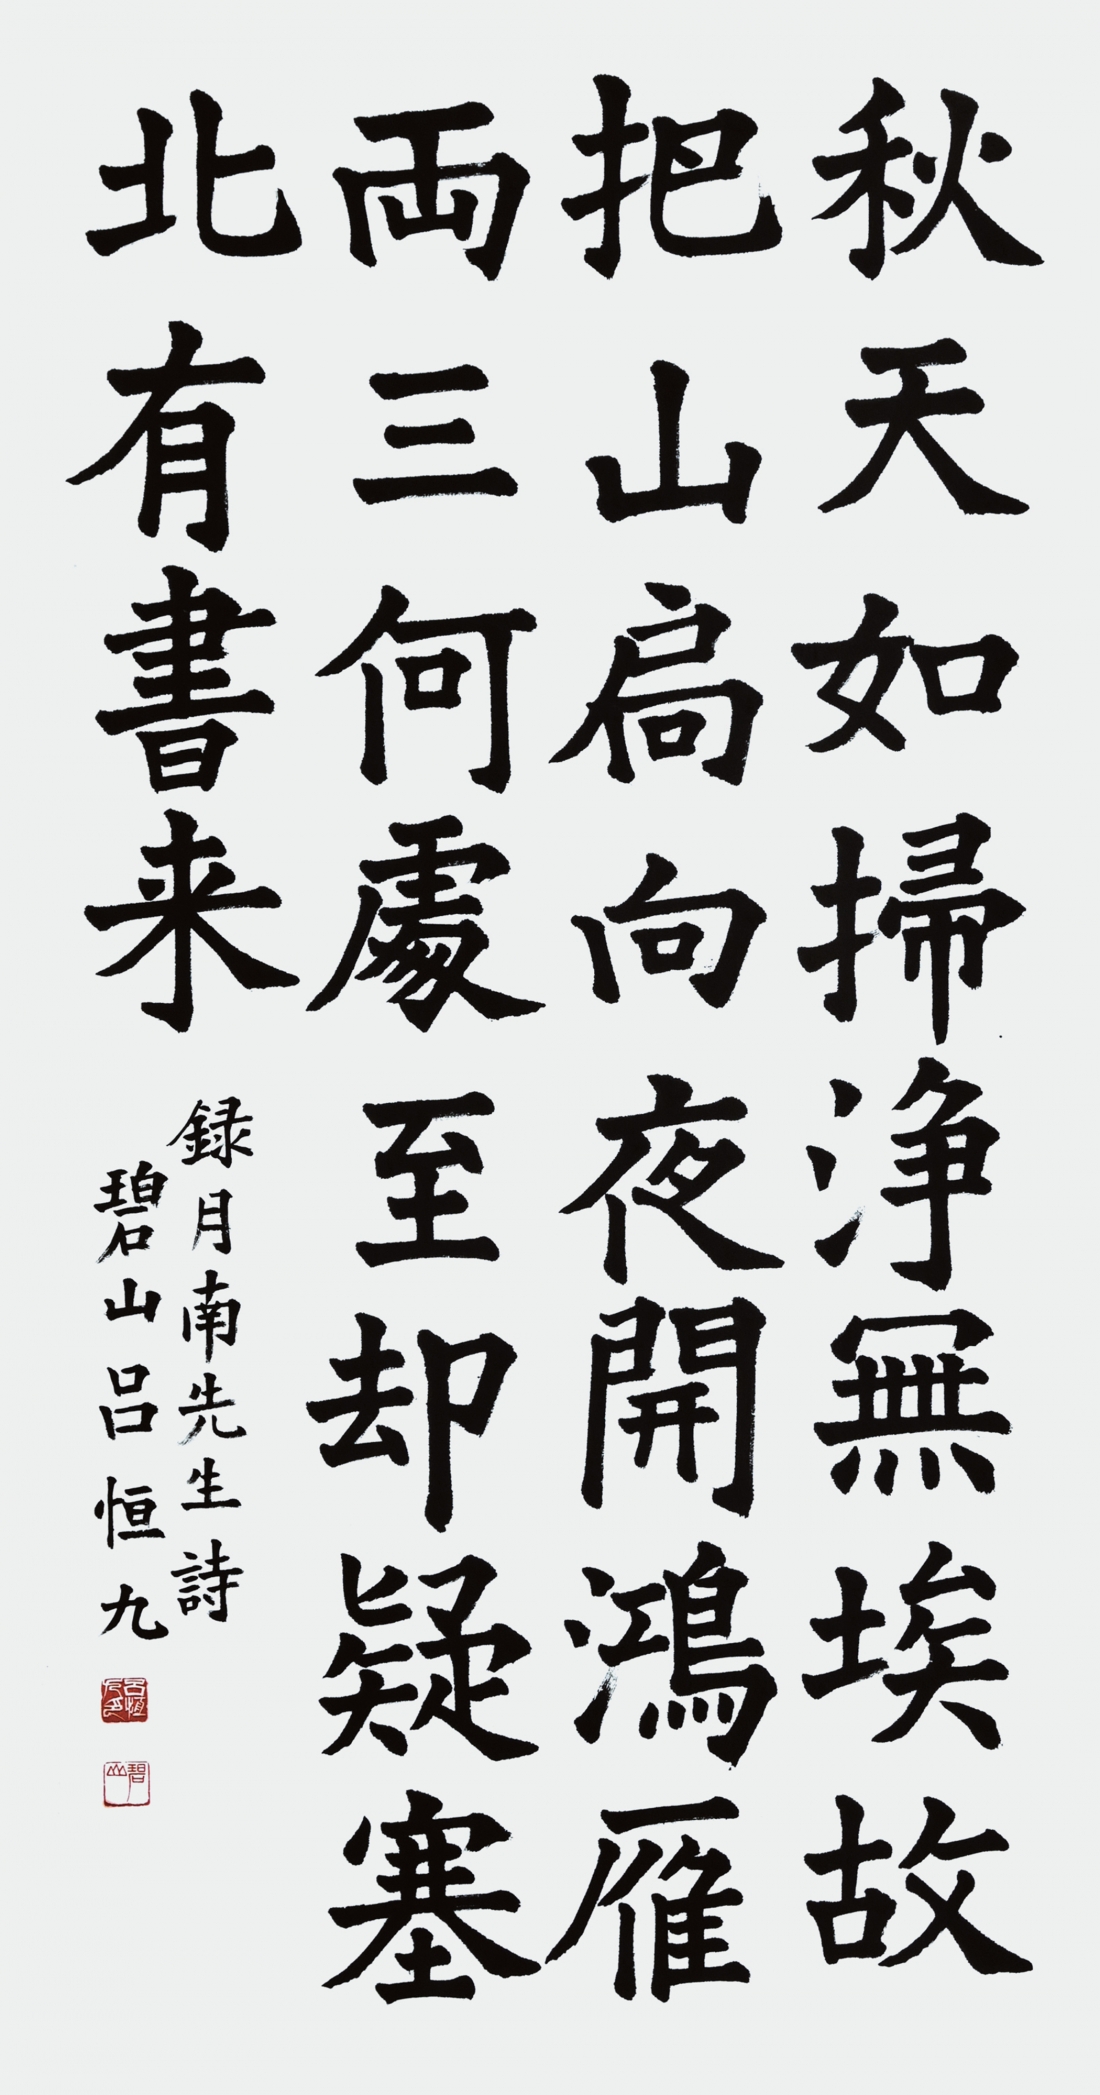 秋天如掃浄無埃故
把山扃向夜開鴻雁
両三何處至却疑塞
北有書来
録月南先生詩
碧山呂恒九
呂恒九印
碧山